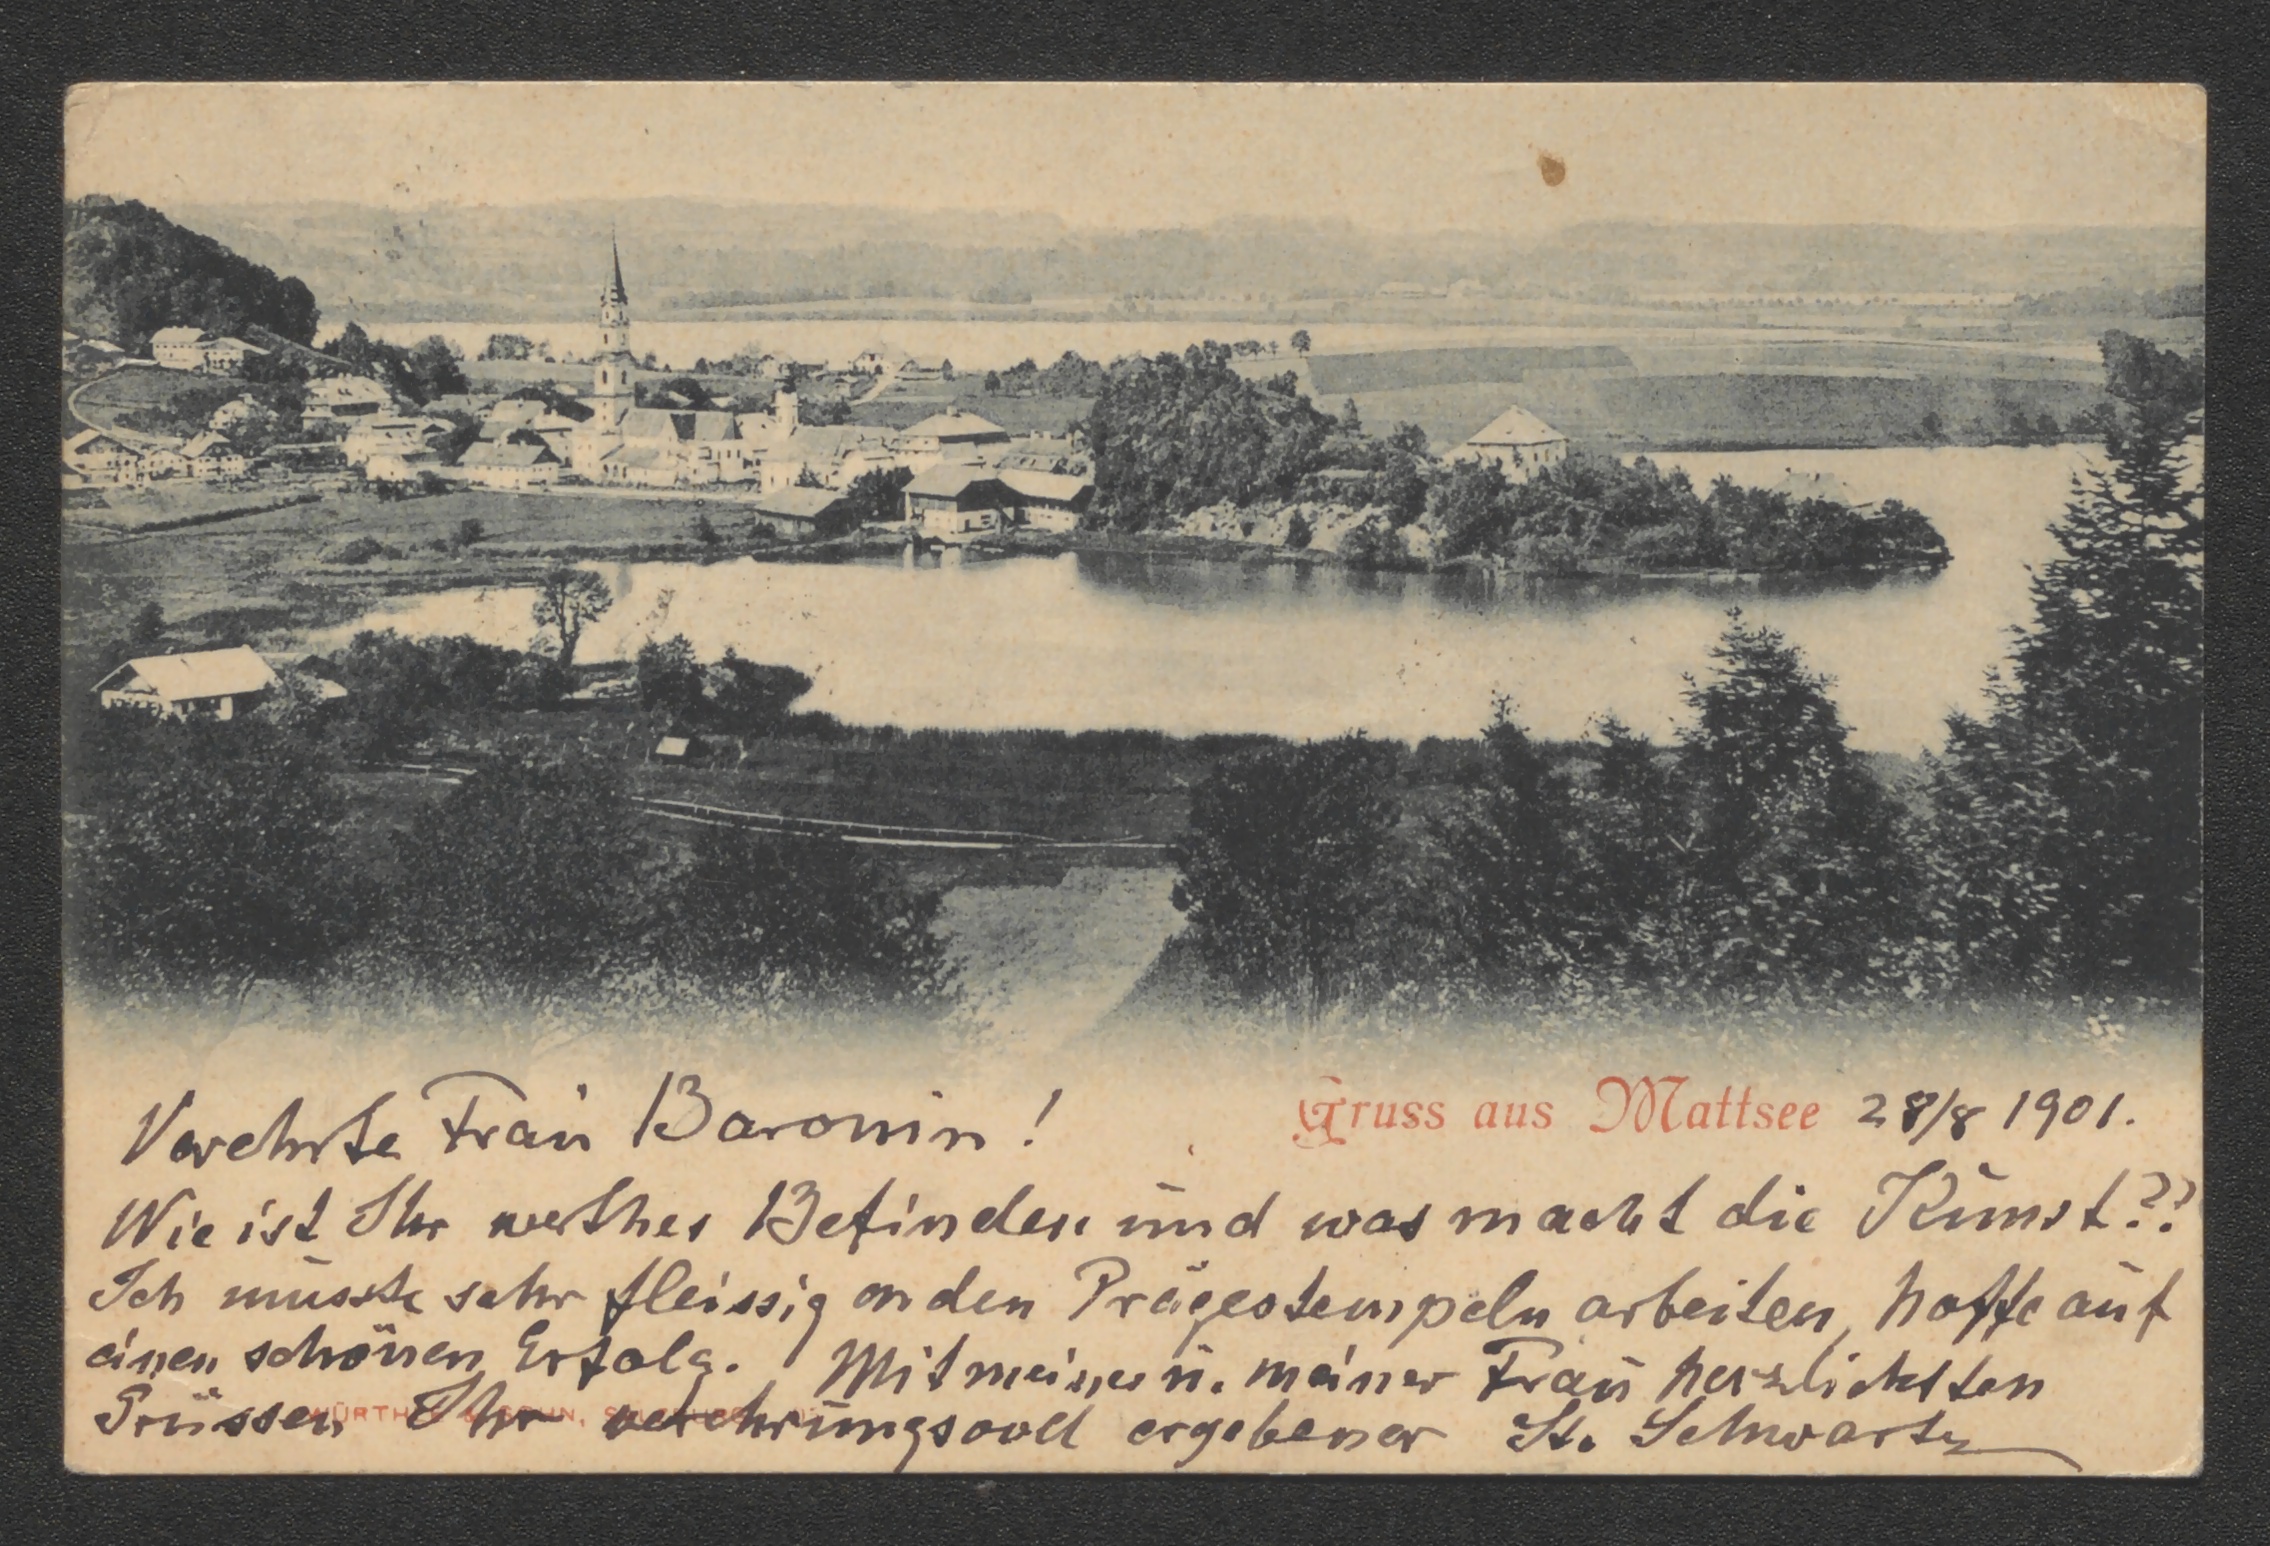 Gruss aus Mattsee 28/8 1901.
Verehrte Frau Baronin!
Wie ist Ihr werthes Befinden und was macht die Kunst??
Ich musste sehr fleissig an den Prägestempeln arbeiten, hoffe auf
einen schönen Erfolg. Mit meinen u. meiner Frau herzlichsten
Grüssen Ihr verehrungsvoll ergebener St. Schwartz
WÜRTHLE & SOHN,